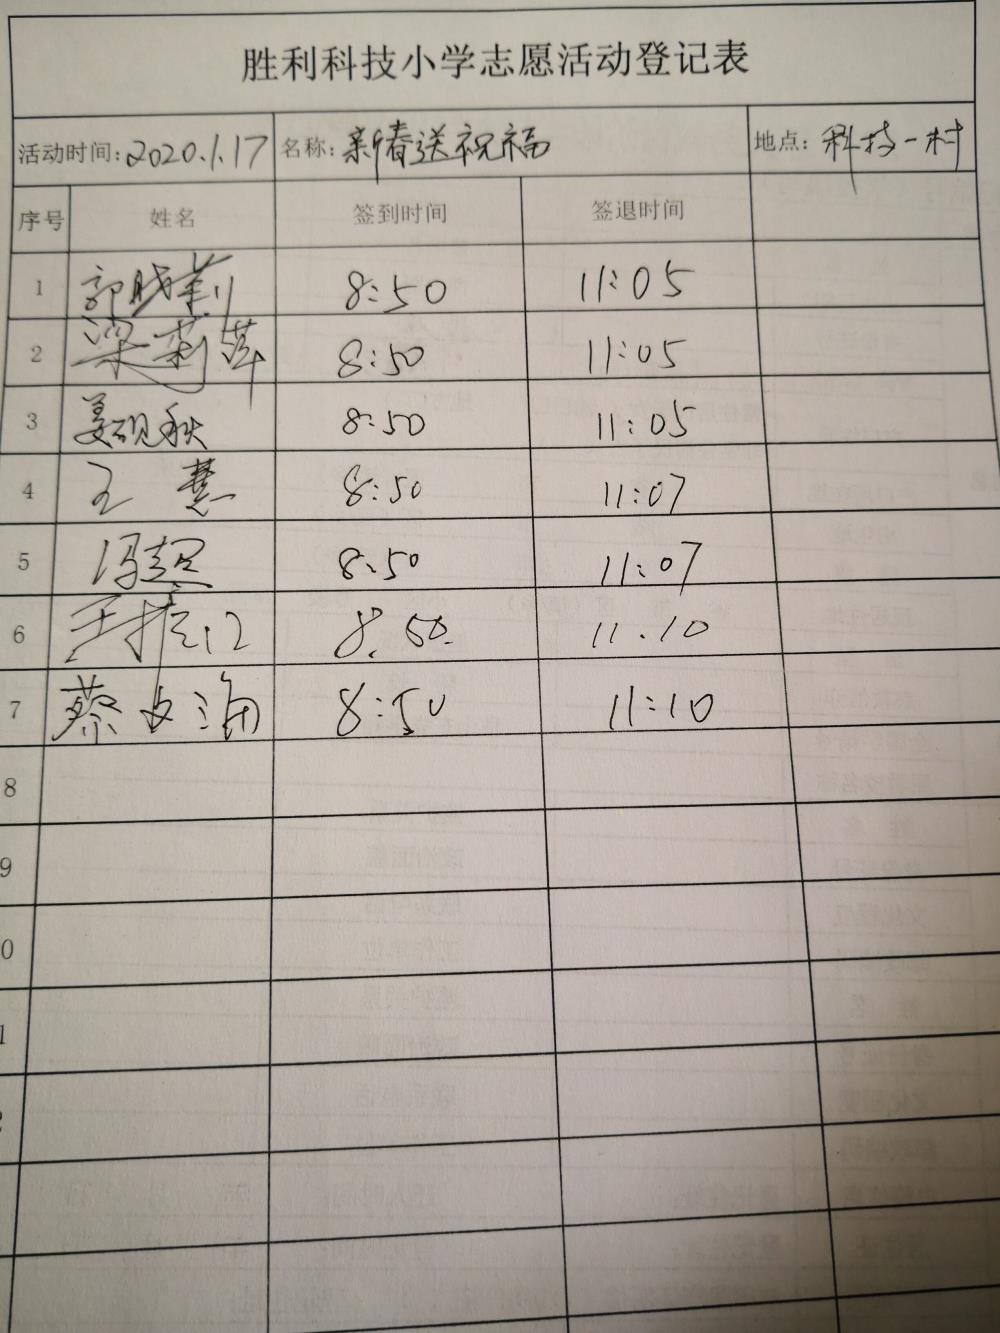 胜利科技小学志愿活动登记表
活动时间:2020.1.17 名称:新春送祝福 地点:科技一村
序号 姓名 签到时间 签退时间
1 郭晓莉 8:50 11:05
2 梁莉萍 8:50 11:05
3 姜砚秋 8:50 11:05
4 王慧 8:50 11:07
5 冯超 8:50 11:07
6 王振江 8.50. 11.10
7 蔡文海 8:50 11:10
8
9
0
1
2